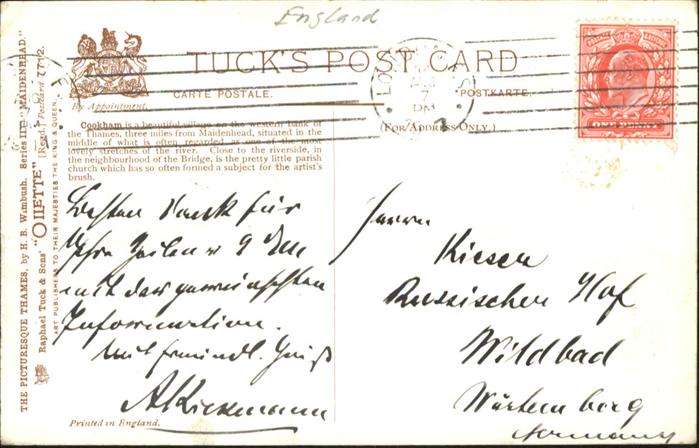 England
TUCK'S POST CARD
CARTE POSTALE.
POSTKARTE.
By Appointment.
(FOR ADDRESS ONLY.)
Cookham is a beautiful village on the western bank of
the Thames, three miles from Maidenhead, situated in the
middle of what is often regarded as one of the most
lovely stretches of the river. Close to the riverside, in
the neighbourhood of the Bridge, is the pretty little parish
church which has so often formed a subject for the artist's
brush.
THE PICTURESQUE THAMES, by H. B. Wimbush. Series III. "MAIDENHEAD."
Raphael Tuck & Sons' "OILETTE" [Regd.] Postcard 7712.
ART PUBLISHERS TO THEIR MAJESTIES THE KING & QUEEN.
ONE PENNY
Besten Dank für
Ihre Zeilen
mit der gewünschten
Information.
Mit freundl. Gruß
Printed in England.
Herrn
Russischer Hof
Wildbad
Würtemberg
Germany